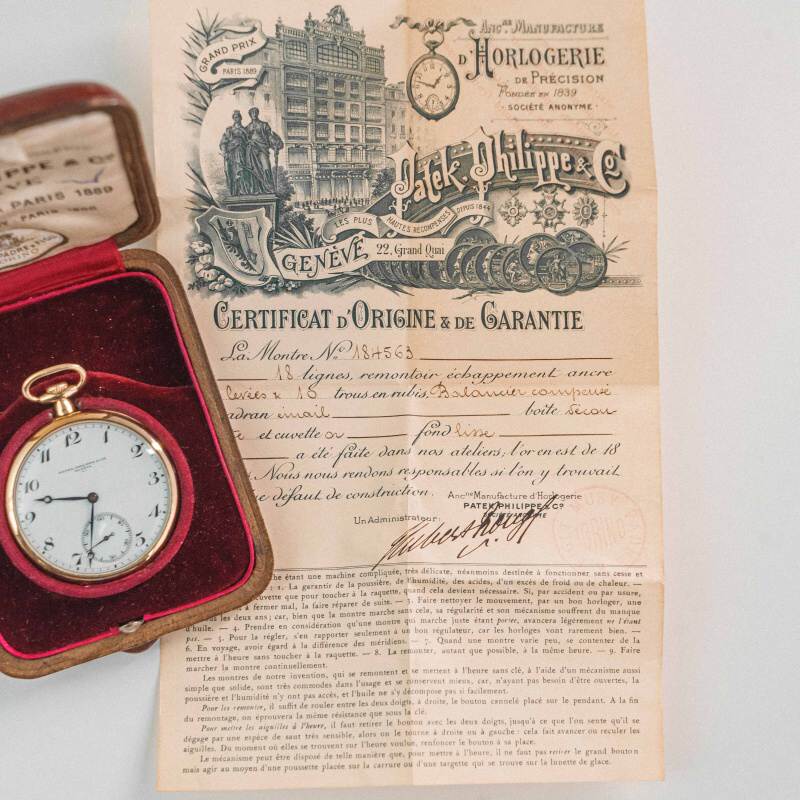 GRAND PRIX
PARIS 1889
ANC.NE MANUFACTURE
D'HORLOGERIE
DE PRÉCISION
FONDÉE EN 1839
SOCIÉTÉ ANONYME
Patek, Philippe & Co
LES PLUS HAUTES RÉCOMPENSES DEPUIS 1844
GENÈVE 22, Grand Quai
CERTIFICAT D'ORIGINE & DE GARANTIE
La Montre No 184563
18 lignes, remontoir échappement ancre
levées x 18 trous en rubis, Balancier compensé
adran émail boîte décou
et cuvette or fond lisse
a été faite dans nos ateliers; l'or en est de 18
Nous nous rendons responsables si l'on y trouvait
défaut de construction.
Anc.ne Manufacture d'Horlogerie
PATEK, PHILIPPE & Co
SOCIÉTÉ ANONYME
Un Administrateur:
che étant une machine compliquée, très délicate, néanmoins destinée à fonctionner sans cesse et
: 1. La garantir de la poussière, de l'humidité, des acides, d'un excès de froid ou de chaleur. —
cuvette que pour toucher à la raquette, quand cela devient nécessaire. Si, par accident ou par usure,
à fermer mal, la faire réparer de suite. — 3. Faire nettoyer le mouvement, par un bon horloger, une
us les deux ans; car, bien que la montre marche sans cela, sa régularité et son mécanisme souffrent du manque
d'huile. — 4. Prendre en considération qu'une montre qui marche juste étant portée, avancera légèrement ne l'étant
pas. — 5. Pour la régler, s'en rapporter seulement à un bon régulateur, car les horloges vont rarement bien. —
6. En voyage, avoir égard à la différence des méridiens. — 7. Quand une montre varie peu, se contenter de la
mettre à l'heure sans toucher à la raquette. — 8. La remonter, autant que possible, à la même heure. — 9. Faire
marcher la montre continuellement.
Les montres de notre invention, qui se remontent et se mettent à l'heure sans clé, à l'aide d'un mécanisme aussi
simple que solide, sont très commodes dans l'usage et se conservent mieux, car, n'ayant pas besoin d'être ouvertes, la
poussière et l'humidité n'y ont pas accès, et l'huile ne s'y décompose pas si facilement.
Pour les remonter, il suffit de rouler entre les deux doigts, à droite, le bouton cannelé placé sur le pendant. A la fin
du remontage, on éprouvera la même résistance que sous la clé.
Pour mettre les aiguilles à l'heure, il faut retirer le bouton avec les deux doigts, jusqu'à ce que l'on sente qu'il se
dégage par une espèce de saut très sensible, alors on le tourne à droite ou à gauche: cela fait avancer ou reculer les
aiguilles. Du moment où elles se trouvent sur l'heure voulue, renfoncer le bouton à sa place.
Le mécanisme peut être disposé de telle manière que, pour mettre à l'heure, il ne faut pas retirer le grand bouton
mais agir au moyen d'une poussette placée sur la carrure ou d'une targette qui se trouve sur la lunette de glace.
IPPE & Co
ÈVE
PARIS 1889
12 1 2 3 4 5 7 8 9 10 11